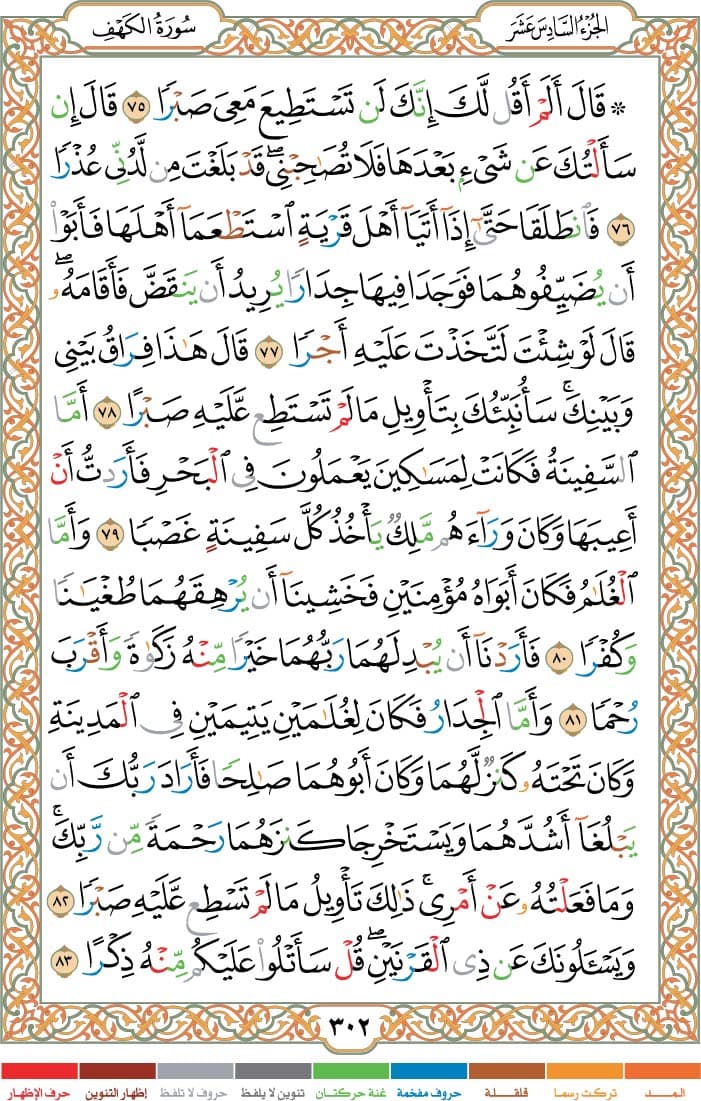 الجزء السادس عشر
سورة الكهف
۞ قَالَ أَلَمْ أَقُل لَّكَ إِنَّكَ لَن تَسْتَطِيعَ مَعِىَ صَبْرًا ٧٥ قَالَ إِن
سَأَلْتُكَ عَن شَىْءٍۭ بَعْدَهَا فَلَا تُصَـٰحِبْنِى ۖ قَدْ بَلَغْتَ مِن لَّدُنِّى عُذْرًا
٧٦ فَٱنطَلَقَا حَتَّىٰٓ إِذَآ أَتَيَآ أَهْلَ قَرْيَةٍ ٱسْتَطْعَمَآ أَهْلَهَا فَأَبَوْا۟
أَن يُضَيِّفُوهُمَا فَوَجَدَا فِيهَا جِدَارًا يُرِيدُ أَن يَنقَضَّ فَأَقَامَهُۥ ۖ
قَالَ لَوْ شِئْتَ لَتَّخَذْتَ عَلَيْهِ أَجْرًا ٧٧ قَالَ هَـٰذَا فِرَاقُ بَيْنِى
وَبَيْنِكَ ۚ سَأُنَبِّئُكَ بِتَأْوِيلِ مَا لَمْ تَسْتَطِع عَّلَيْهِ صَبْرًا ٧٨ أَمَّا
ٱلسَّفِينَةُ فَكَانَتْ لِمَسَـٰكِينَ يَعْمَلُونَ فِى ٱلْبَحْرِ فَأَرَدتُّ أَنْ
أَعِيبَهَا وَكَانَ وَرَآءَهُم مَّلِكٌ يَأْخُذُ كُلَّ سَفِينَةٍ غَصْبًا ٧٩ وَأَمَّا
ٱلْغُلَـٰمُ فَكَانَ أَبَوَاهُ مُؤْمِنَيْنِ فَخَشِينَآ أَن يُرْهِقَهُمَا طُغْيَـٰنًا
وَكُفْرًا ٨٠ فَأَرَدْنَآ أَن يُبْدِلَهُمَا رَبُّهُمَا خَيْرًا مِّنْهُ زَكَوٰةً وَأَقْرَبَ
رُحْمًا ٨١ وَأَمَّا ٱلْجِدَارُ فَكَانَ لِغُلَـٰمَيْنِ يَتِيمَيْنِ فِى ٱلْمَدِينَةِ
وَكَانَ تَحْتَهُۥ كَنزٌ لَّهُمَا وَكَانَ أَبُوهُمَا صَـٰلِحًا فَأَرَادَ رَبُّكَ أَن
يَبْلُغَآ أَشُدَّهُمَا وَيَسْتَخْرِجَا كَنزَهُمَا رَحْمَةً مِّن رَّبِّكَ ۚ
وَمَا فَعَلْتُهُۥ عَنْ أَمْرِى ۚ ذَٰلِكَ تَأْوِيلُ مَا لَمْ تَسْطِع عَّلَيْهِ صَبْرًا ٨٢
وَيَسْـَٔلُونَكَ عَن ذِى ٱلْقَرْنَيْنِ ۖ قُلْ سَأَتْلُوا۟ عَلَيْكُم مِّنْهُ ذِكْرًا ٨٣
٣٠٢
المــــد
تركت رسما
قلقــلة
حروف مفخمة
غنة حركتان
تنوين لا يلفظ
حروف لا تلفظ
إظهار التنوين
حرف الإظهار